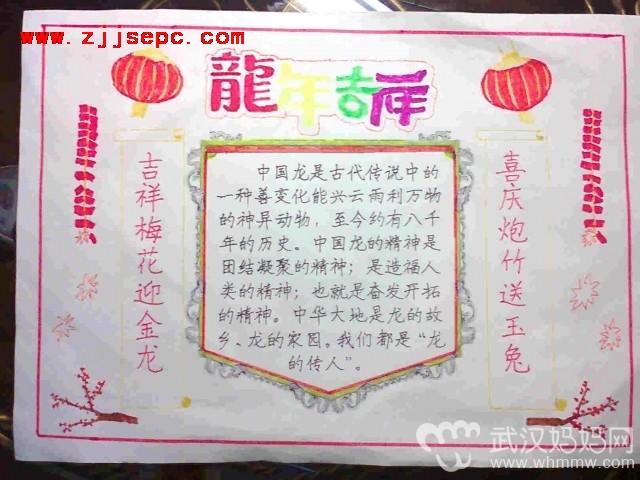 www.zjjsepc.com
龍年吉祥
吉祥梅花迎金龙
中国龙是古代传说中的
一种善变化能兴云雨利万物
的神异动物，至今约有八千
年的历史。中国龙的精神是
团结凝聚的精神；是造福人
类的精神；也就是奋发开拓
的精神。中华大地是龙的故
乡、龙的家园。我们都是“龙
的传人”。
喜庆炮竹送玉兔
武汉妈妈网
www.whmmw.com